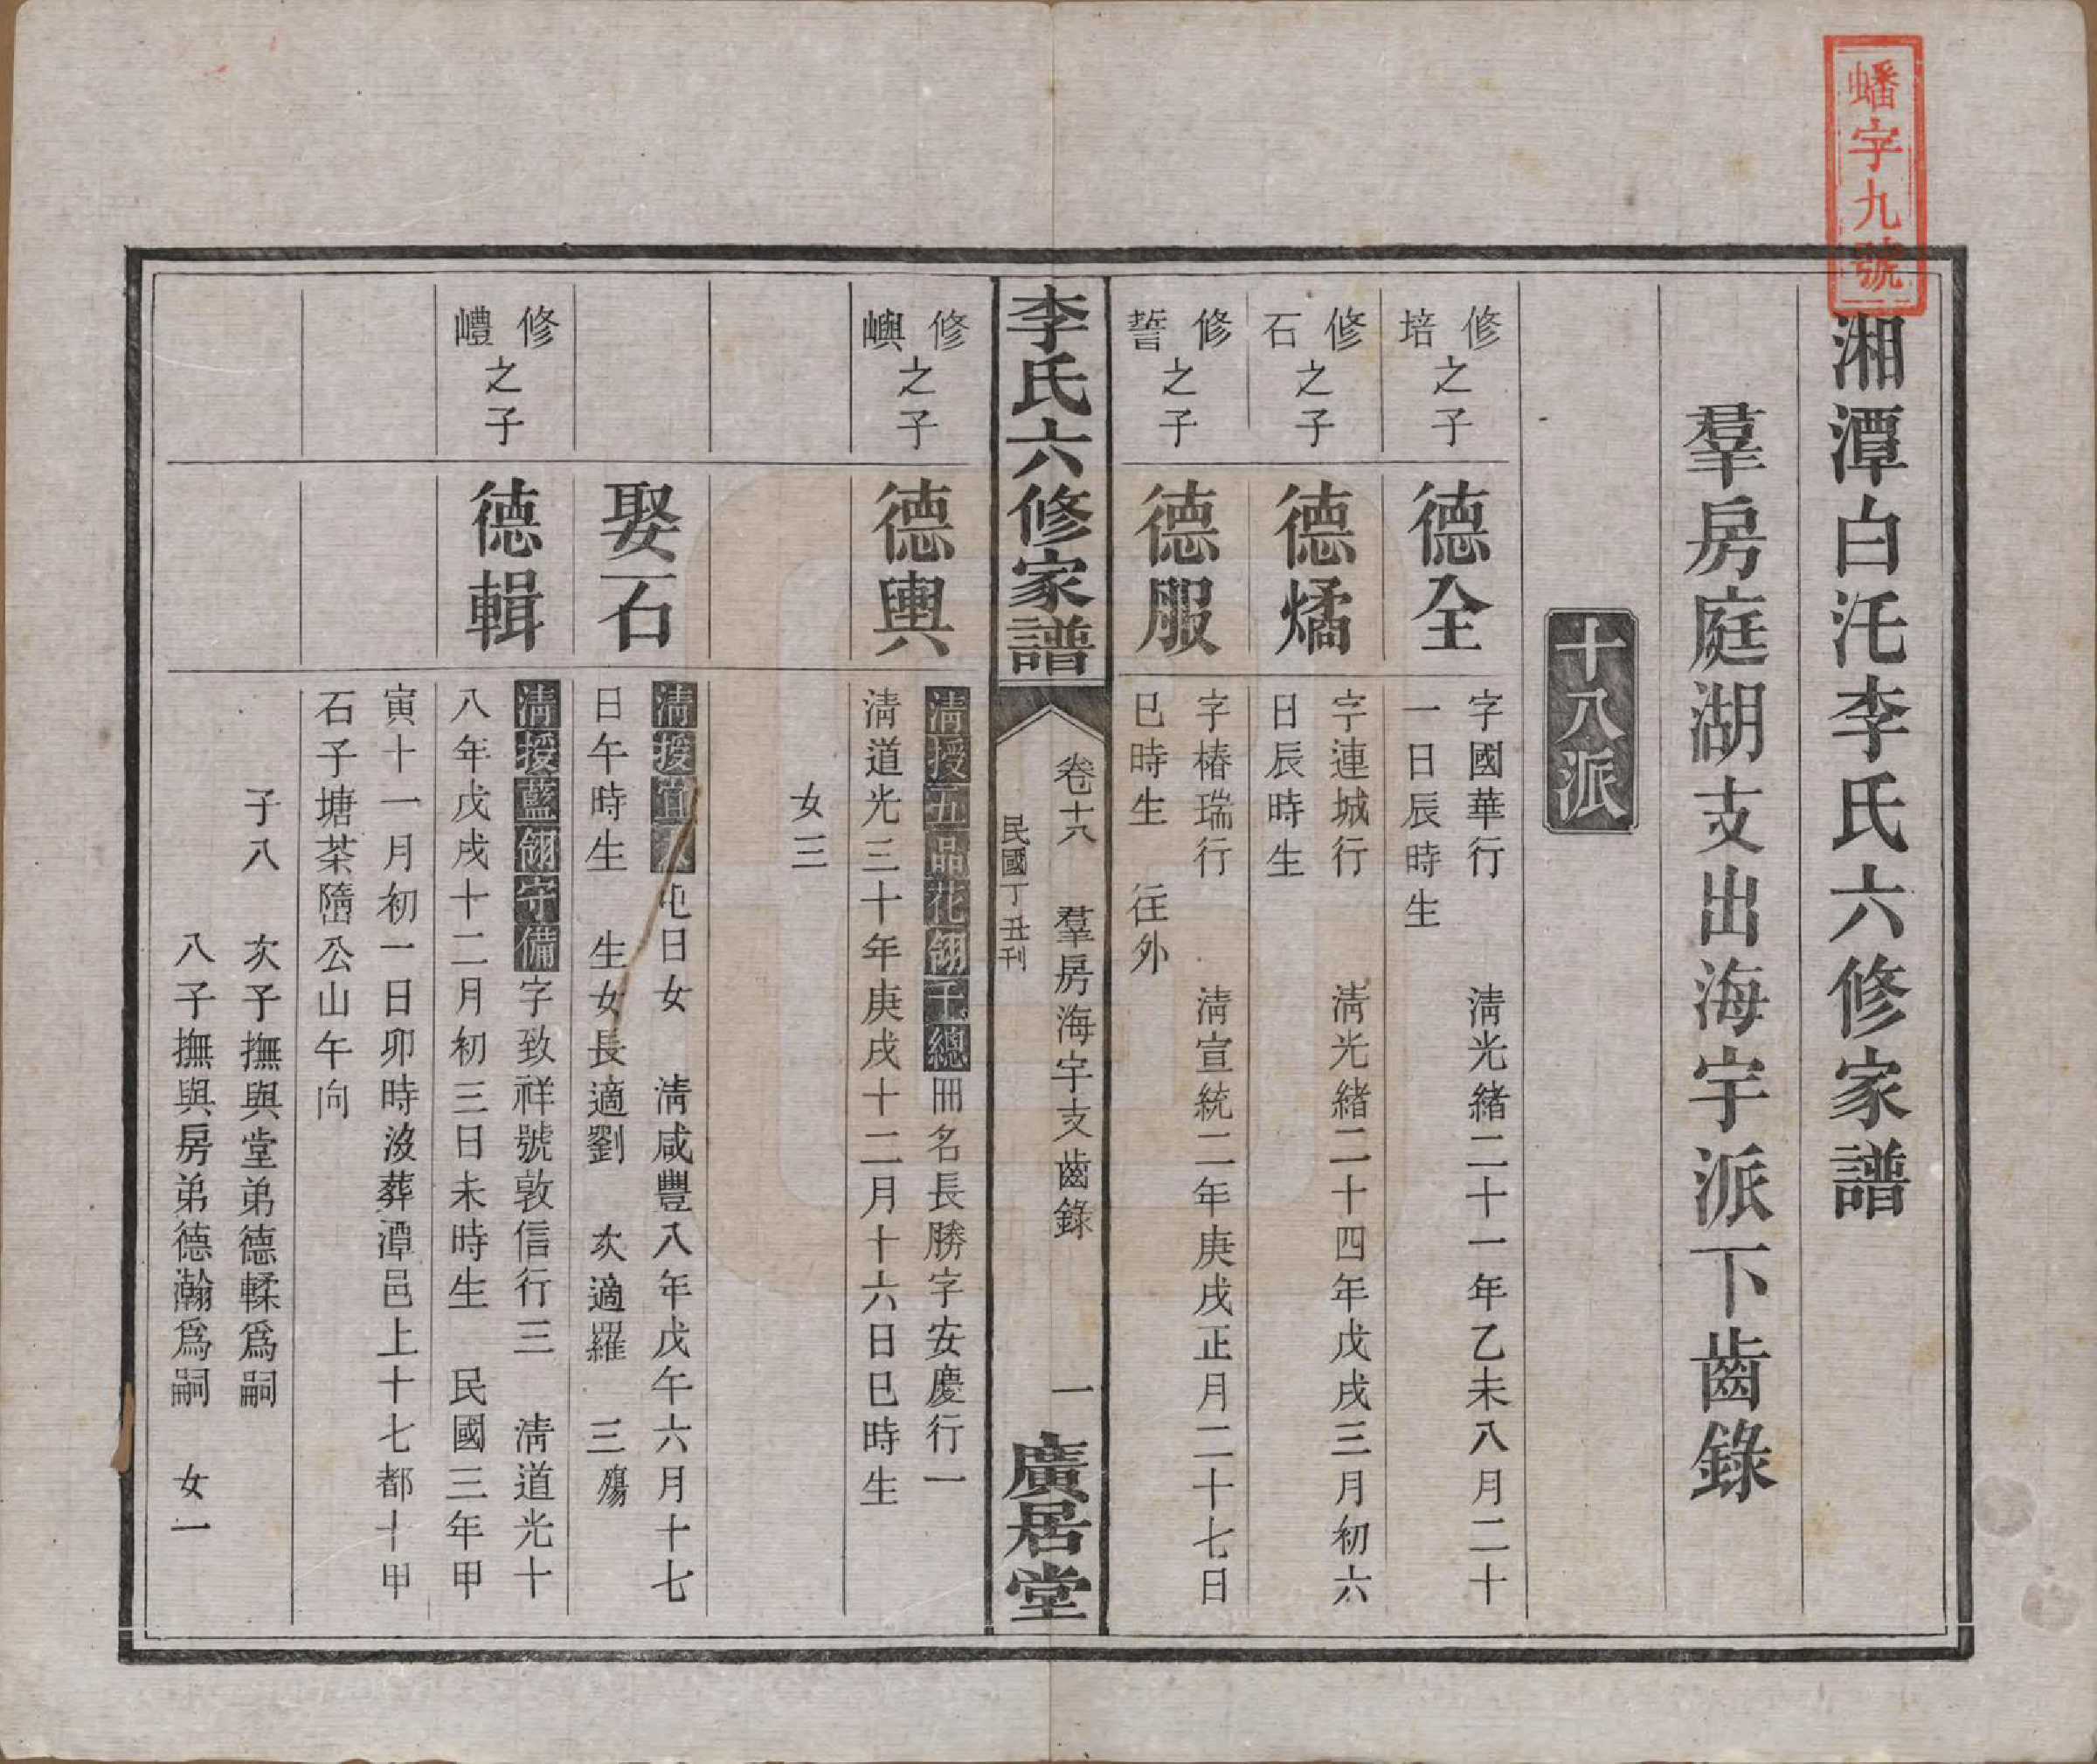 蟠字九號
湘潭白汑李氏六修家譜
羣房庭湖支出海宇派下齒錄
十八派
修培之子
德全
字國華行　清光緒二十一年乙未八月二十
一日辰時生
修石之子
德燏
字連城行　清光緒二十四年戊戌三月初六
日辰時生
修誓之子
德服
字椿瑞行　清宣統二年庚戌正月二十七日
巳時生　往外
李氏六修家譜
卷十六　羣房海宇支齒錄　一
民國丁丑刊
廣居堂
修嶼之子
德輿
清授五品花翎千總冊名長勝字安慶行一
清道光三十年庚戌十二月十六日巳時生
女三
娶石
清授宜日女　清咸豐八年戊午六月十七
日午時生　生女長適劉　次適羅　三殤
修嶆之子
德輯
清授藍翎守備字致祥號敦信行三　清道光十
八年戊戌十二月初三日未時生　民國三年甲
寅十一月初一日卯時沒葬潭邑上十七都十甲
石子塘茶隯公山午向
子八　次子撫與堂弟德輮爲嗣
八子撫與房弟德瀚爲嗣　女一